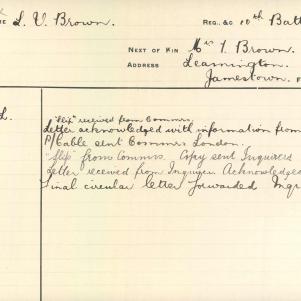 L. V. Brown. REG., &C 10th Batt
NEXT OF KIN Mr T. Brown.
ADDRESS Leamington,
Jamestown.
L.
"Slip" received from Commrs.
Letter acknowledged with information from
P/Cable sent Commrs London.
"Slip" from Commrs. Copy sent Inquirers
Letter received from Inquirer. Acknowledged
Final circular letter forwarded Inqr